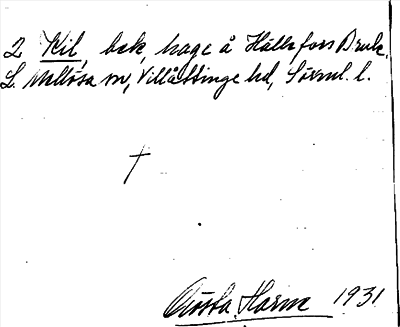 2 Kil, bæk, hage å Hällefors Bruk,
L. Mellösa sn, Villåttinge hd, Sörml. l.
Gösta Harne 1931